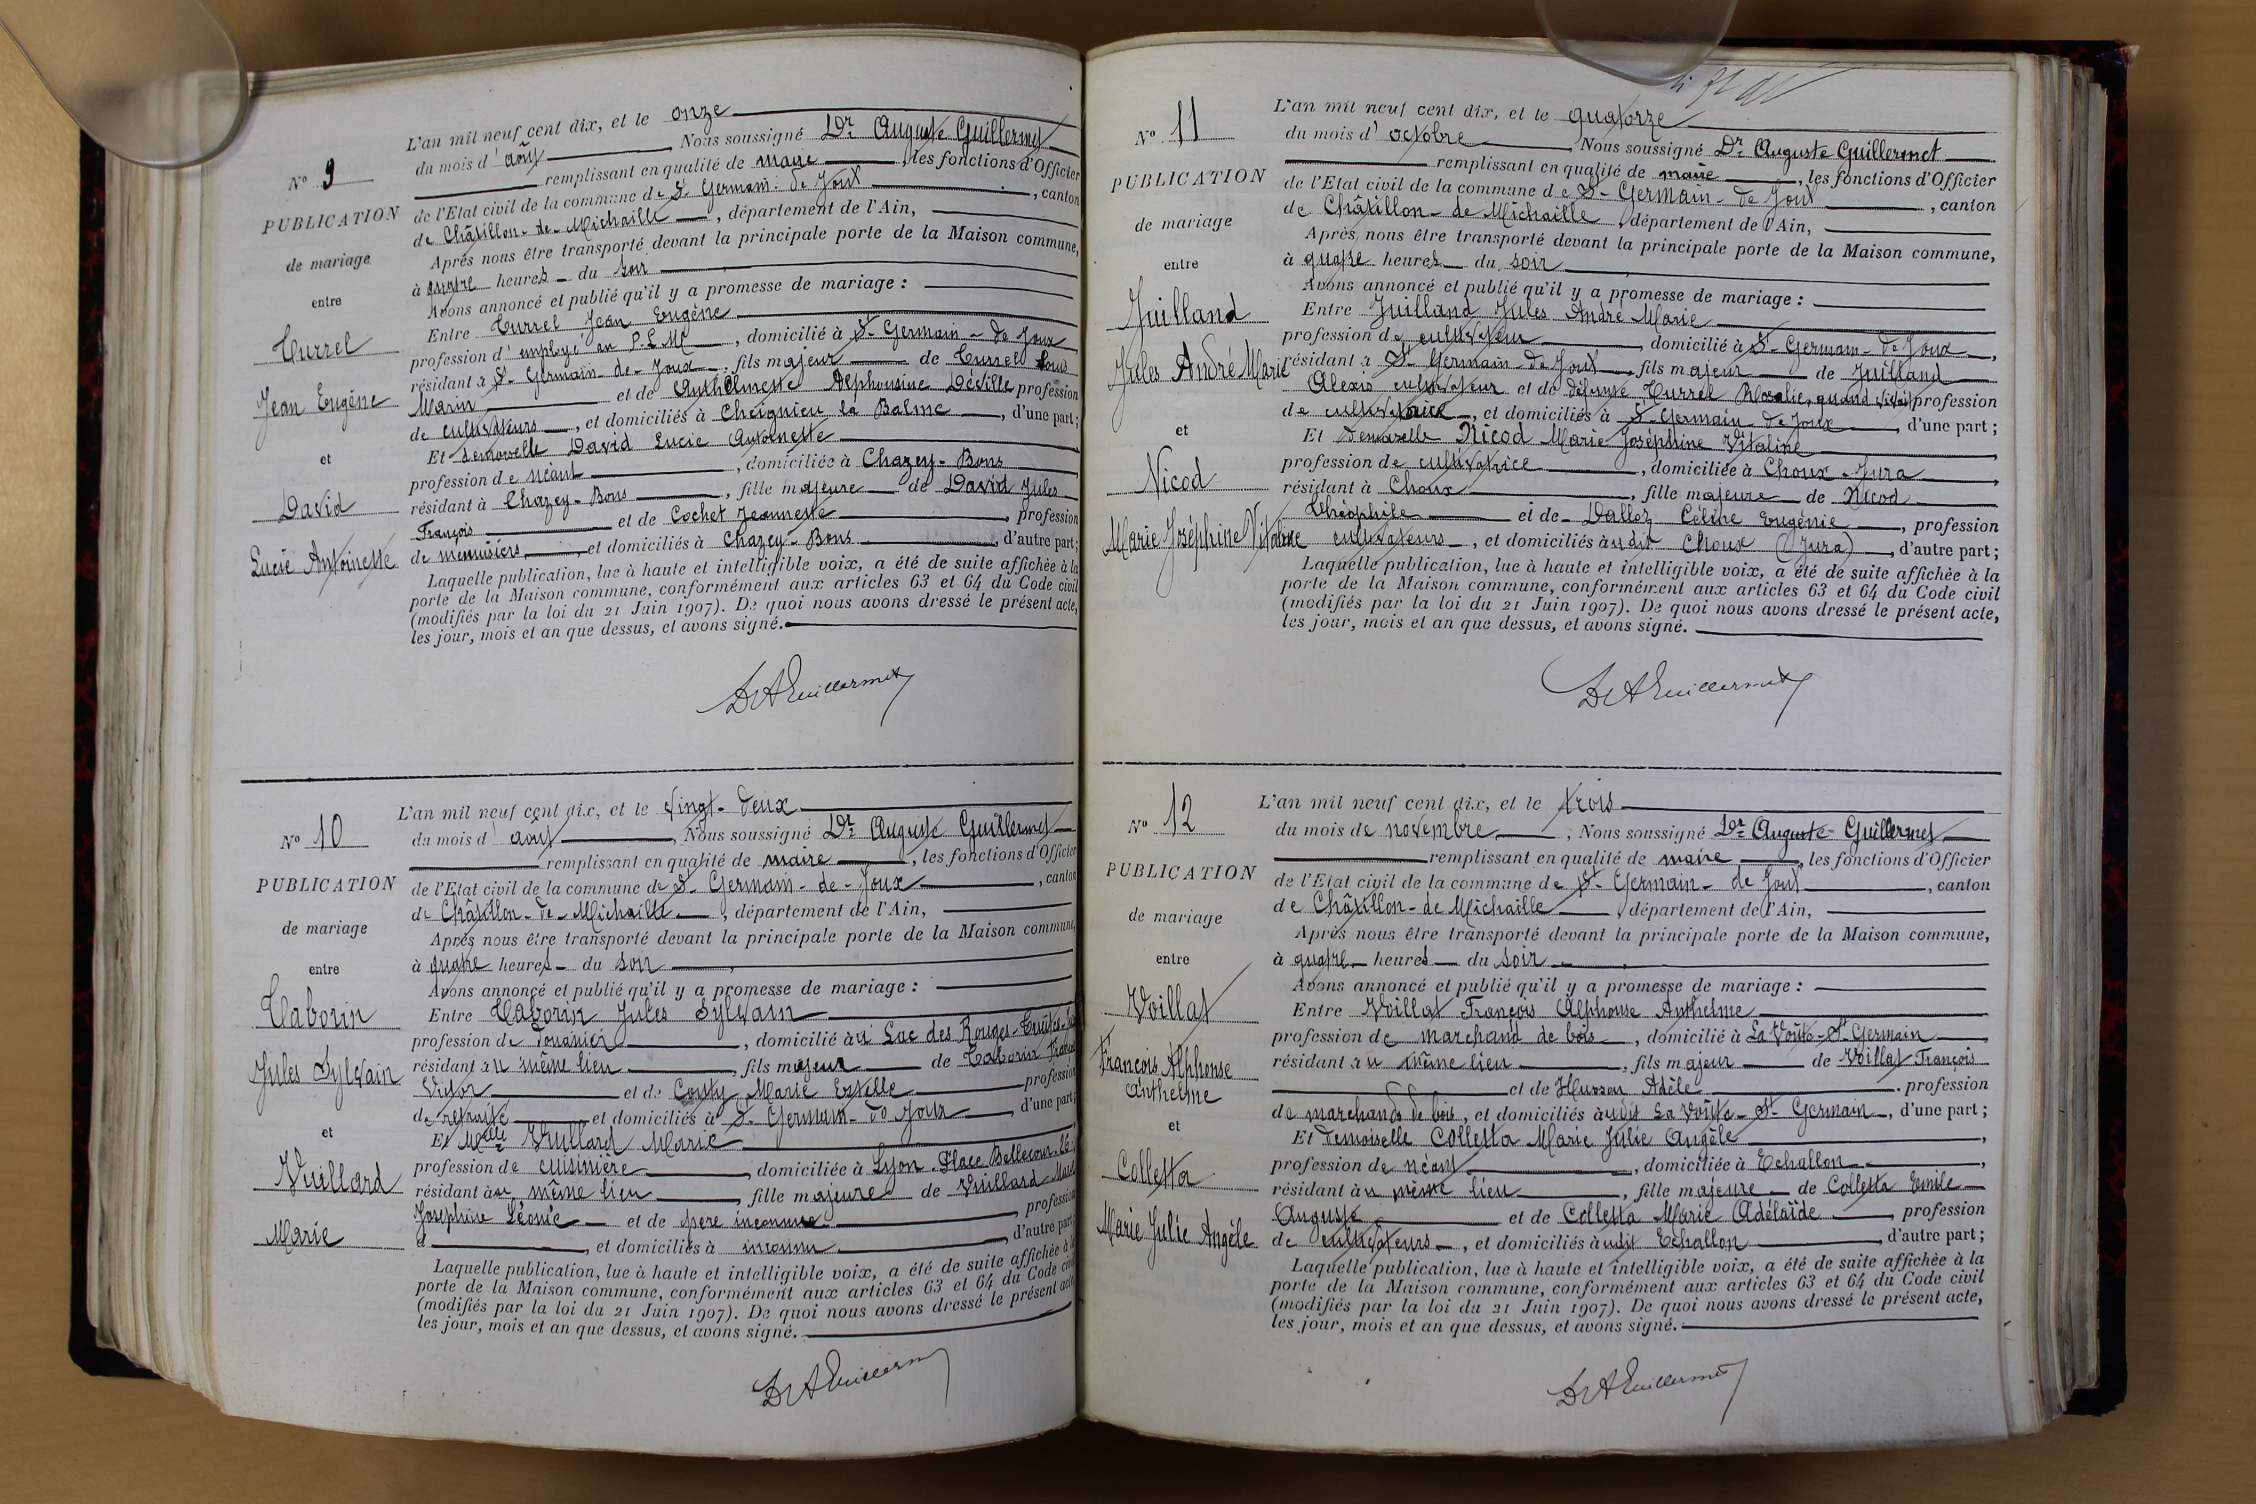 N° 9
PUBLICATION
de mariage
entre
Turrel
Jean Eugène
et
David
Lucie Antoinette
L'an mil neuf cent dix, et le onze
du mois d'août, Nous soussigné Dr Auguste Guillermet
remplissant en qualité de maire, les fonctions d'Officier
de l'Etat civil de la commune de St Germain-de-Joux, canton
de Châtillon-de-Michaille, département de l'Ain,
Après nous être transporté devant la principale porte de la Maison commune,
à quatre heures du soir
Avons annoncé et publié qu'il y a promesse de mariage :
Entre Turrel Jean Eugène
profession d'employé au P.L.M., domicilié à St-Germain-de-Joux
résidant à St-Germain-de-Joux, fils majeur de Turrel Louis
Marin et de Anthelmette Alphonsine Déville profession
de cultivateurs, et domiciliés à Cheignieu la Balme, d'une part ;
Et demoiselle David Lucie Antoinette
profession de néant, domiciliée à Chazey-Bons
résidant à Chazey-Bons, fille majeure de David Jules
François et de Cochet Jeannette, profession
de menuisiers, et domiciliés à Chazey-Bons, d'autre part ;
Laquelle publication, lue à haute et intelligible voix, a été de suite affichée à la
porte de la Maison commune, conformément aux articles 63 et 64 du Code civil
(modifiés par la loi du 21 Juin 1907). De quoi nous avons dressé le présent acte,
les jour, mois et an que dessus, et avons signé.
Dr A Guillermet
N° 10
PUBLICATION
de mariage
entre
Taborin
Jules Sylvain
et
Vuillard
Marie
L'an mil neuf cent dix, et le vingt-deux
du mois d'août, Nous soussigné Dr Auguste Guillermet
remplissant en qualité de maire, les fonctions d'Officier
de l'Etat civil de la commune de St Germain-de-Joux, canton
de Châtillon-de-Michaille, département de l'Ain,
Après nous être transporté devant la principale porte de la Maison commune,
à quatre heures du soir
Avons annoncé et publié qu'il y a promesse de mariage :
Entre Taborin Jules Sylvain
profession de douanier, domicilié au Lac des Rouges-Truites
résidant au même lieu, fils majeur de Taborin
Victor et de Marie Estelle profession
de retraité et domiciliés à St Germain-de Joux, d'une part ;
Et Melle Vuillard Marie
profession de cuisinière, domiciliée à Lyon, Place Bellecour 26,
résidant au même lieu, fille majeure de Vuillard
Josephine Léonie et de père inconnu, profession
d, et domiciliés à inconnu, d'autre part ;
Laquelle publication, lue à haute et intelligible voix, a été de suite affichée à la
porte de la Maison commune, conformément aux articles 63 et 64 du Code civil
(modifiés par la loi du 21 Juin 1907). De quoi nous avons dressé le présent acte
les jour, mois et an que dessus, et avons signé.
Dr A Guillermet
N° 11
PUBLICATION
de mariage
entre
Juilland
Jules André Marie
et
Nicod
Marie Joséphine Vitaline
L'an mil neuf cent dix, et le quatorze
du mois d'octobre, Nous soussigné Dr Auguste Guillermet
remplissant en qualité de maire, les fonctions d'Officier
de l'Etat civil de la commune de St-Germain-de Joux, canton
de Châtillon-de Michaille, département de l'Ain,
Après nous être transporté devant la principale porte de la Maison commune,
à quatre heures du soir
Avons annoncé et publié qu'il y a promesse de mariage :
Entre Juilland Jules André Marie
profession de cultivateur, domicilié à St-Germain-de Joux,
résidant à St Germain-de Joux, fils majeur de Juilland
Alexis cultivateur et de défunte Turrel Rosalie, quand vivait profession
de cultivatrice, et domiciliés à St-Germain-de Joux, d'une part ;
Et demoiselle Nicod Marie Joséphine Vitaline,
profession de cultivatrice, domiciliée à Choux-Jura,
résidant à Choux, fille majeure de Nicod
Théophile et de Dalloz Céline Eugénie, profession
cultivateurs, et domiciliés àudit Choux (Jura), d'autre part ;
Laquelle publication, lue à haute et intelligible voix, a été de suite affichée à la
porte de la Maison commune, conformément aux articles 63 et 64 du Code civil
(modifiés par la loi du 21 Juin 1907). De quoi nous avons dressé le présent acte,
les jour, mois et an que dessus, et avons signé.
Dr A Guillermet
N° 12
PUBLICATION
de mariage
entre
Voillat
François Alphonse
Anthelme
et
Colletta
Marie Julie Angèle
L'an mil neuf cent dix, et le trois
du mois de novembre, Nous soussigné Dr Auguste Guillermet
remplissant en qualité de maire, les fonctions d'Officier
de l'Etat civil de la commune de St-Germain-de Joux, canton
de Châtillon-de Michaille, département de l'Ain,
Après nous être transporté devant la principale porte de la Maison commune,
à quatre heures du soir
Avons annoncé et publié qu'il y a promesse de mariage :
Entre Voillat François Alphonse Anthelme
profession de marchand de bois, domicilié à La Voûte-St Germain
résidant au même lieu, fils majeur de Voillat François
et de Husson Adèle, profession
de marchands de bois, et domiciliés àudit La Voûte-St Germain, d'une part ;
Et demoiselle Colletta Marie Julie Angèle,
profession de néant, domiciliée à Echallon,
résidant au même lieu, fille majeure de Colletta Emile
Auguste et de Colletta Marie Adélaïde, profession
de cultivateurs, et domiciliés àudit Echallon, d'autre part ;
Laquelle publication, lue à haute et intelligible voix, a été de suite affichée à la
porte de la Maison commune, conformément aux articles 63 et 64 du Code civil
(modifiés par la loi du 21 Juin 1907). De quoi nous avons dressé le présent acte,
les jour, mois et an que dessus, et avons signé.
Dr A Guillermet